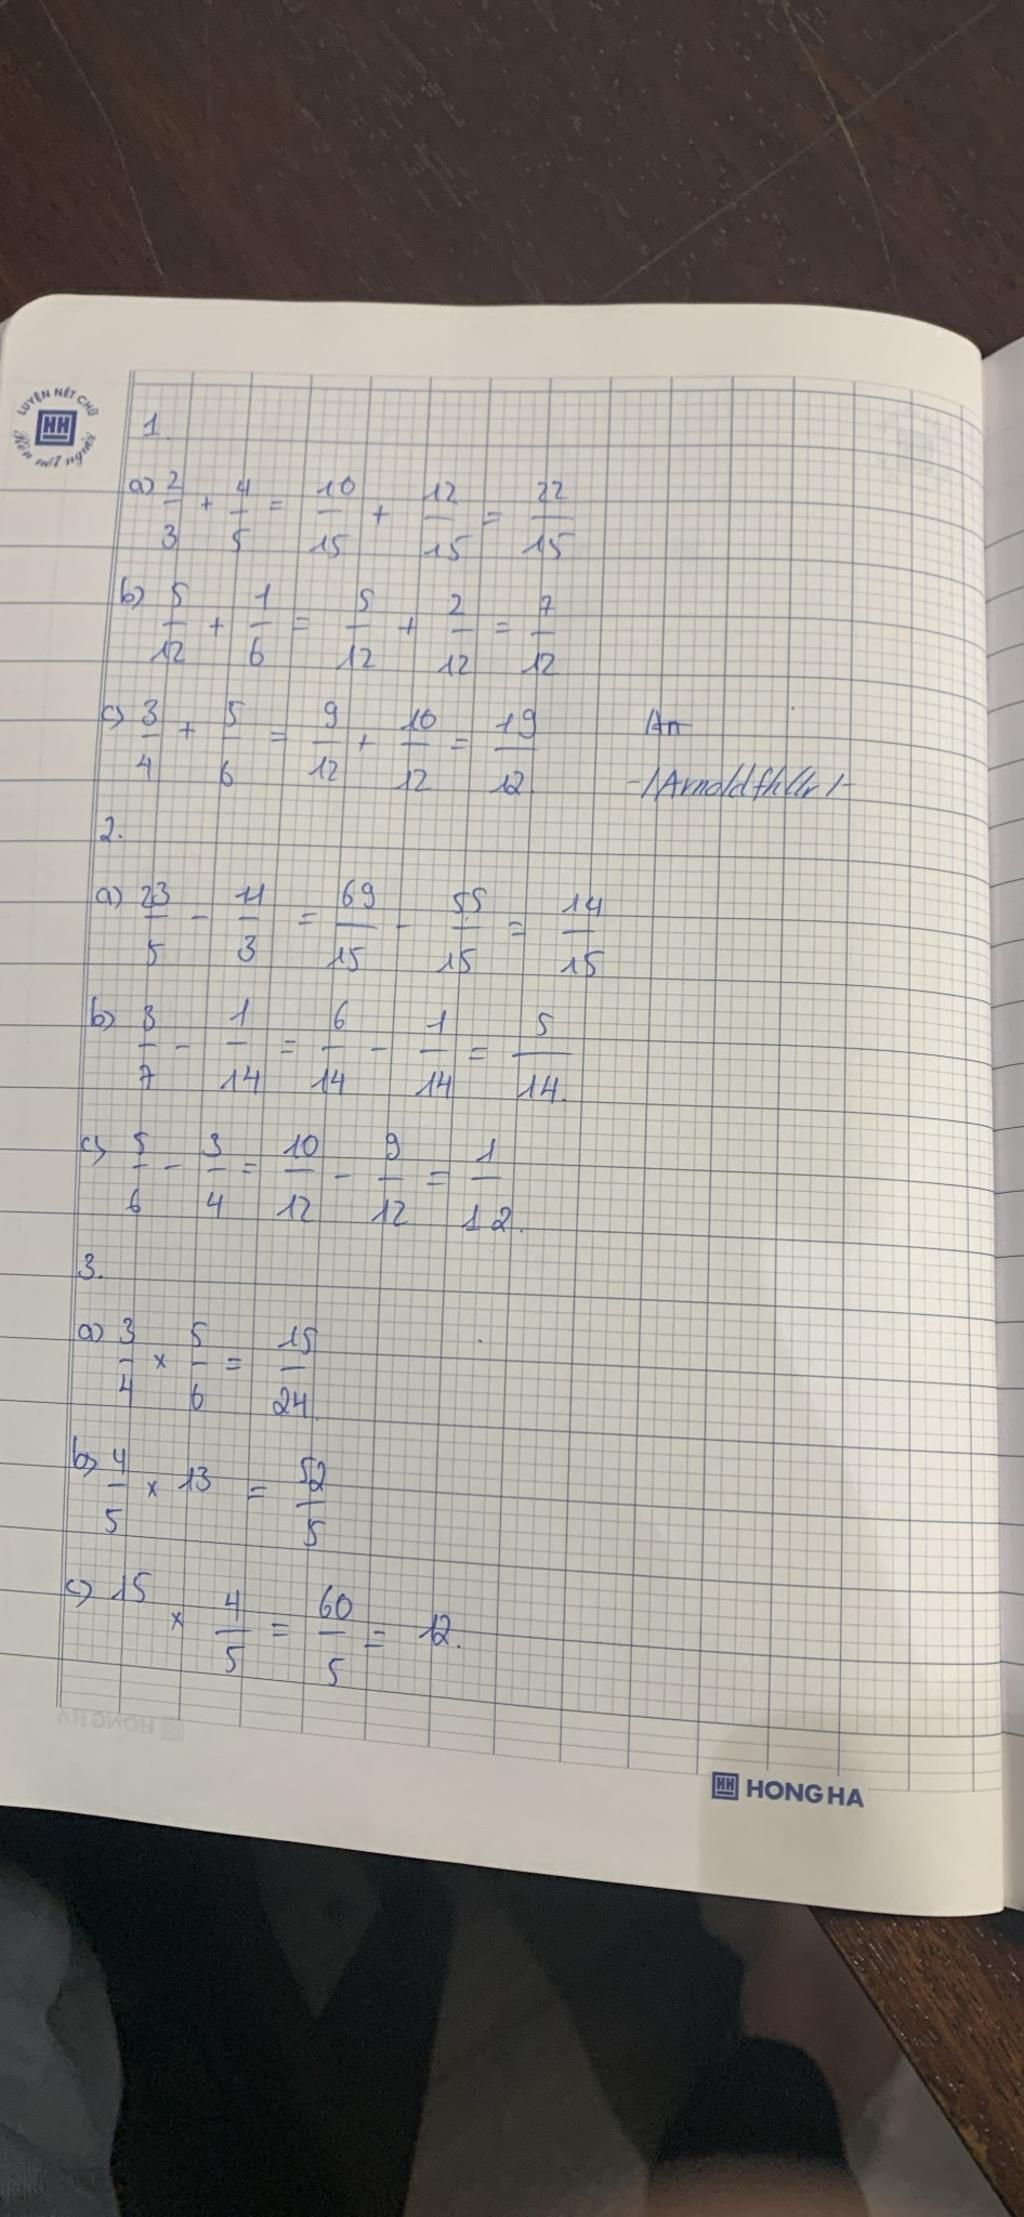 LUYỆN NÉT CHỮ
HH
Rèn nết người
1.
a) 2/3 + 4/5 = 10/15 + 12/15 = 22/15
b) 5/12 + 1/6 = 5/12 + 2/12 = 7/12
c) 3/4 + 5/6 = 9/12 + 10/12 = 19/12
An
2.
a) 23/5 - 11/3 = 69/15 - 55/15 = 14/15
b) 3/7 - 1/14 = 6/14 - 1/14 = 5/14.
c) 5/6 - 3/4 = 10/12 - 9/12 = 1/12.
3.
a) 3/4 × 5/6 = 15/24
b) 4/5 × 13 = 52/5
c) 15 × 4/5 = 60/5 = 12.
HONG HA
HH HONG HA